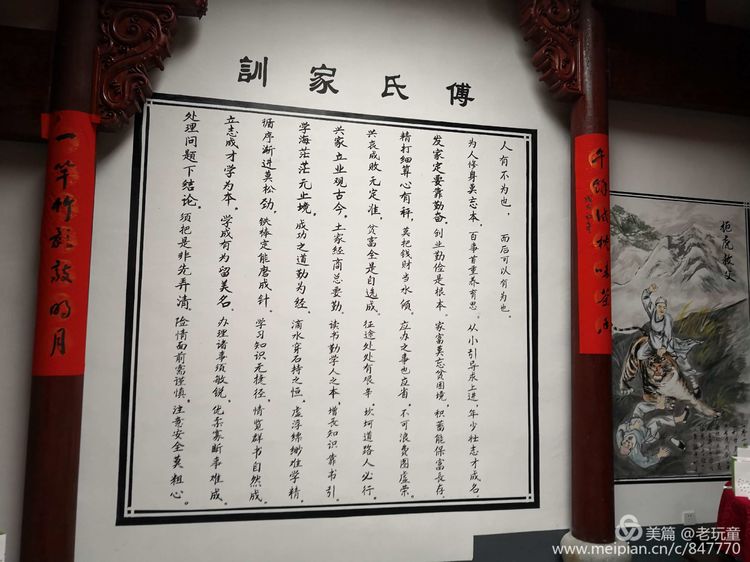 傅氏家訓
人有不为也，而后可以有为也。
为人修身莫忘本，百事首重养育恩，从小引导求上进，年少壮志才成名。
发家定要靠勤奋，创业勤俭是根本，家富莫忘贫困境，积蓄能保富长存。
精打细算心有秤，莫把钱财当水倾，应办之事也应省，不可浪费图虚荣。
兴衰成败无定准，贫富全是自造成，征途处处有艰辛，坎坷道路人必行。
兴家立业观古今，土家经商总要勤，读书勤学人之本，增长知识靠书引。
学海茫茫无止境，成功之道勤为经，滴水穿石持之恒，虚浮缥缈难学精。
循序渐进莫松劲，铁棒定能磨成针，学习知识无捷径，博览群书自然成。
立志成才学为本，学成有为留美名，办理诸事须敏锐，优柔寡断事难成。
处理问题下结论，须把是非先弄清，险情面前需谨慎，注意安全莫粗心。
一竿竹影敲明月
扼虎救父
美篇 @老玩童
www.meipian.cn/c/847770